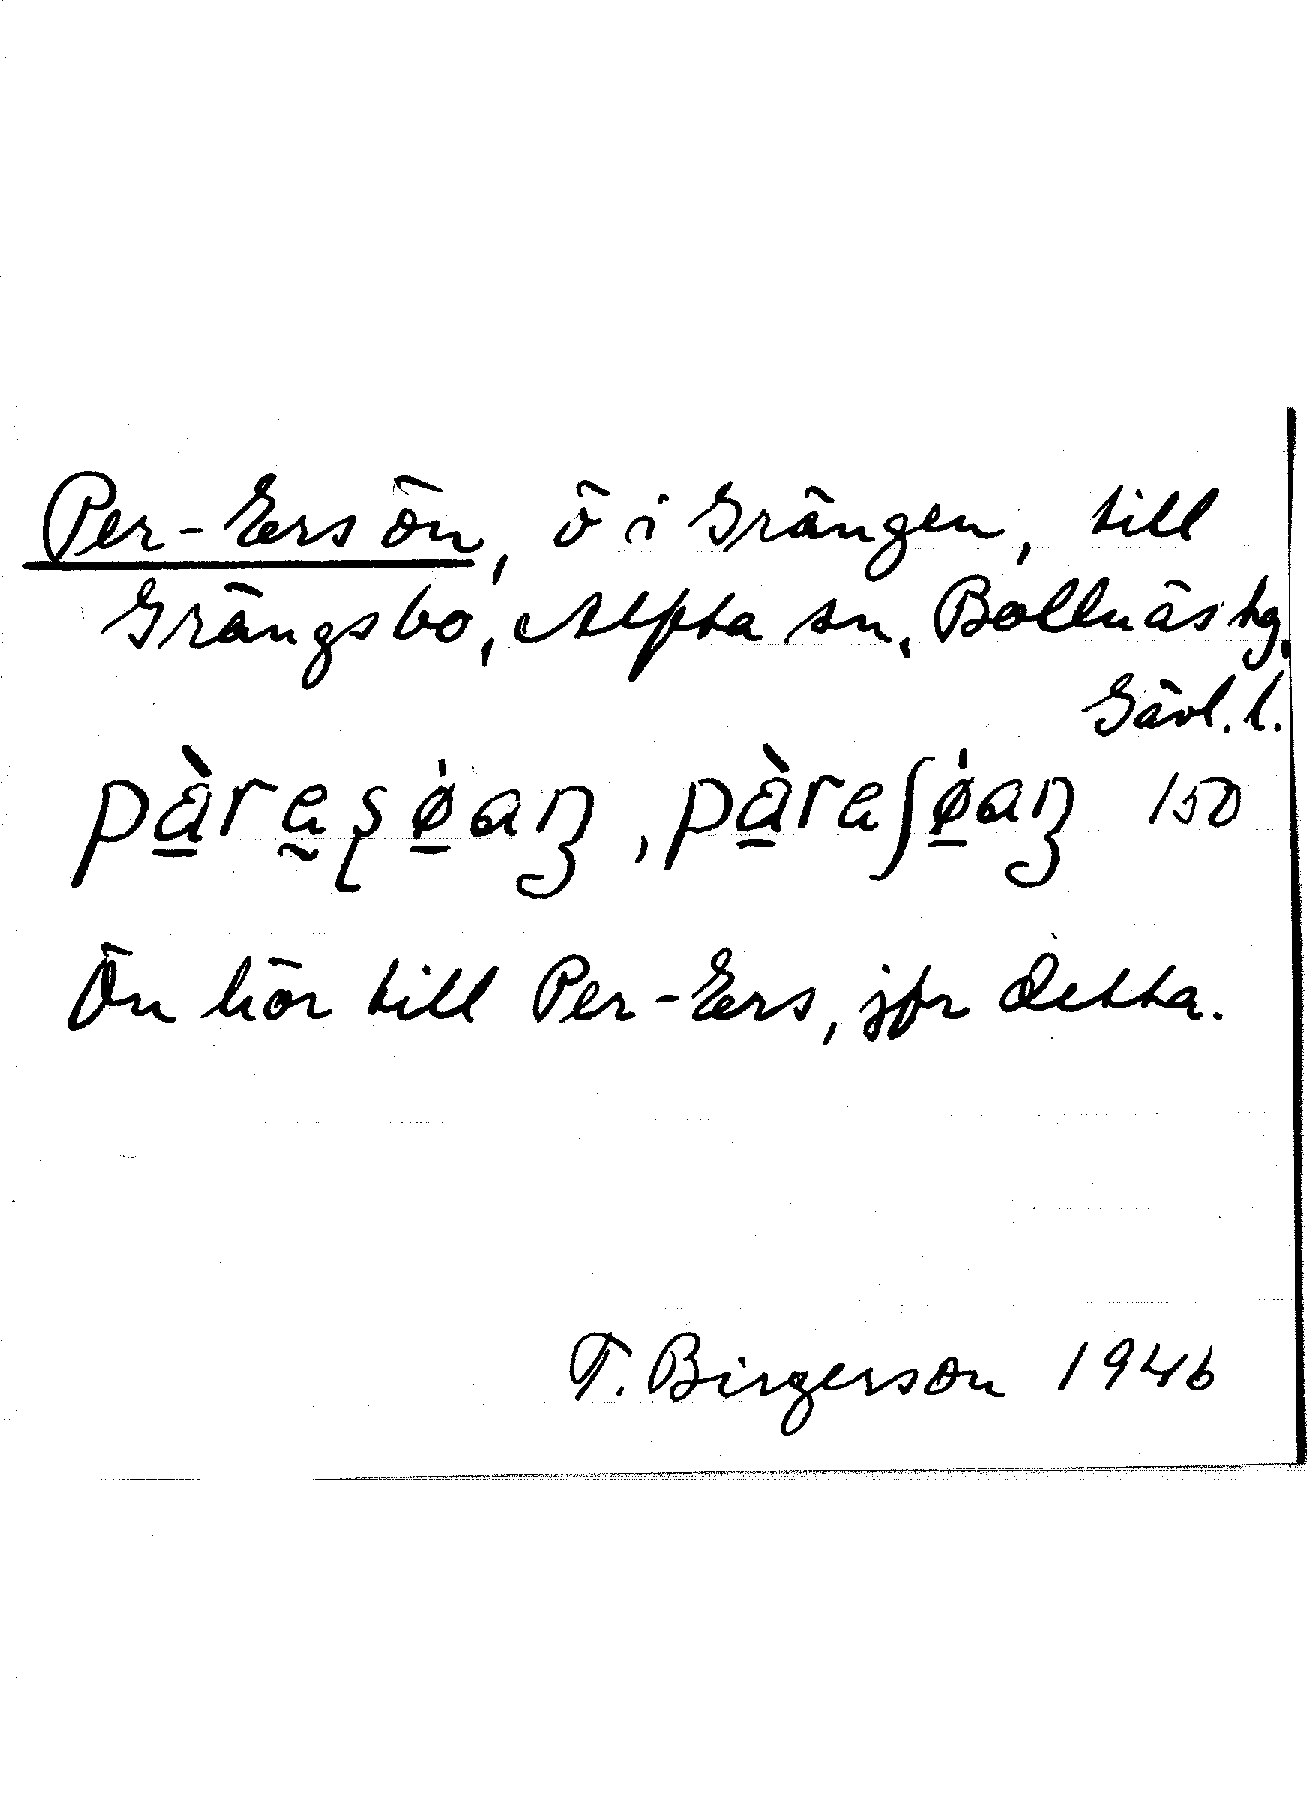 Per-Ersön, ö i Grängen, till
Grängsbo, Alfta sn, Bollnäs tg.
Gävl. l.
pàrąʂǿaꞃ, pàraʃǿaꞃ 150
Ön hör till Per-Ers, jfr detta.
T. Birgerson 1946